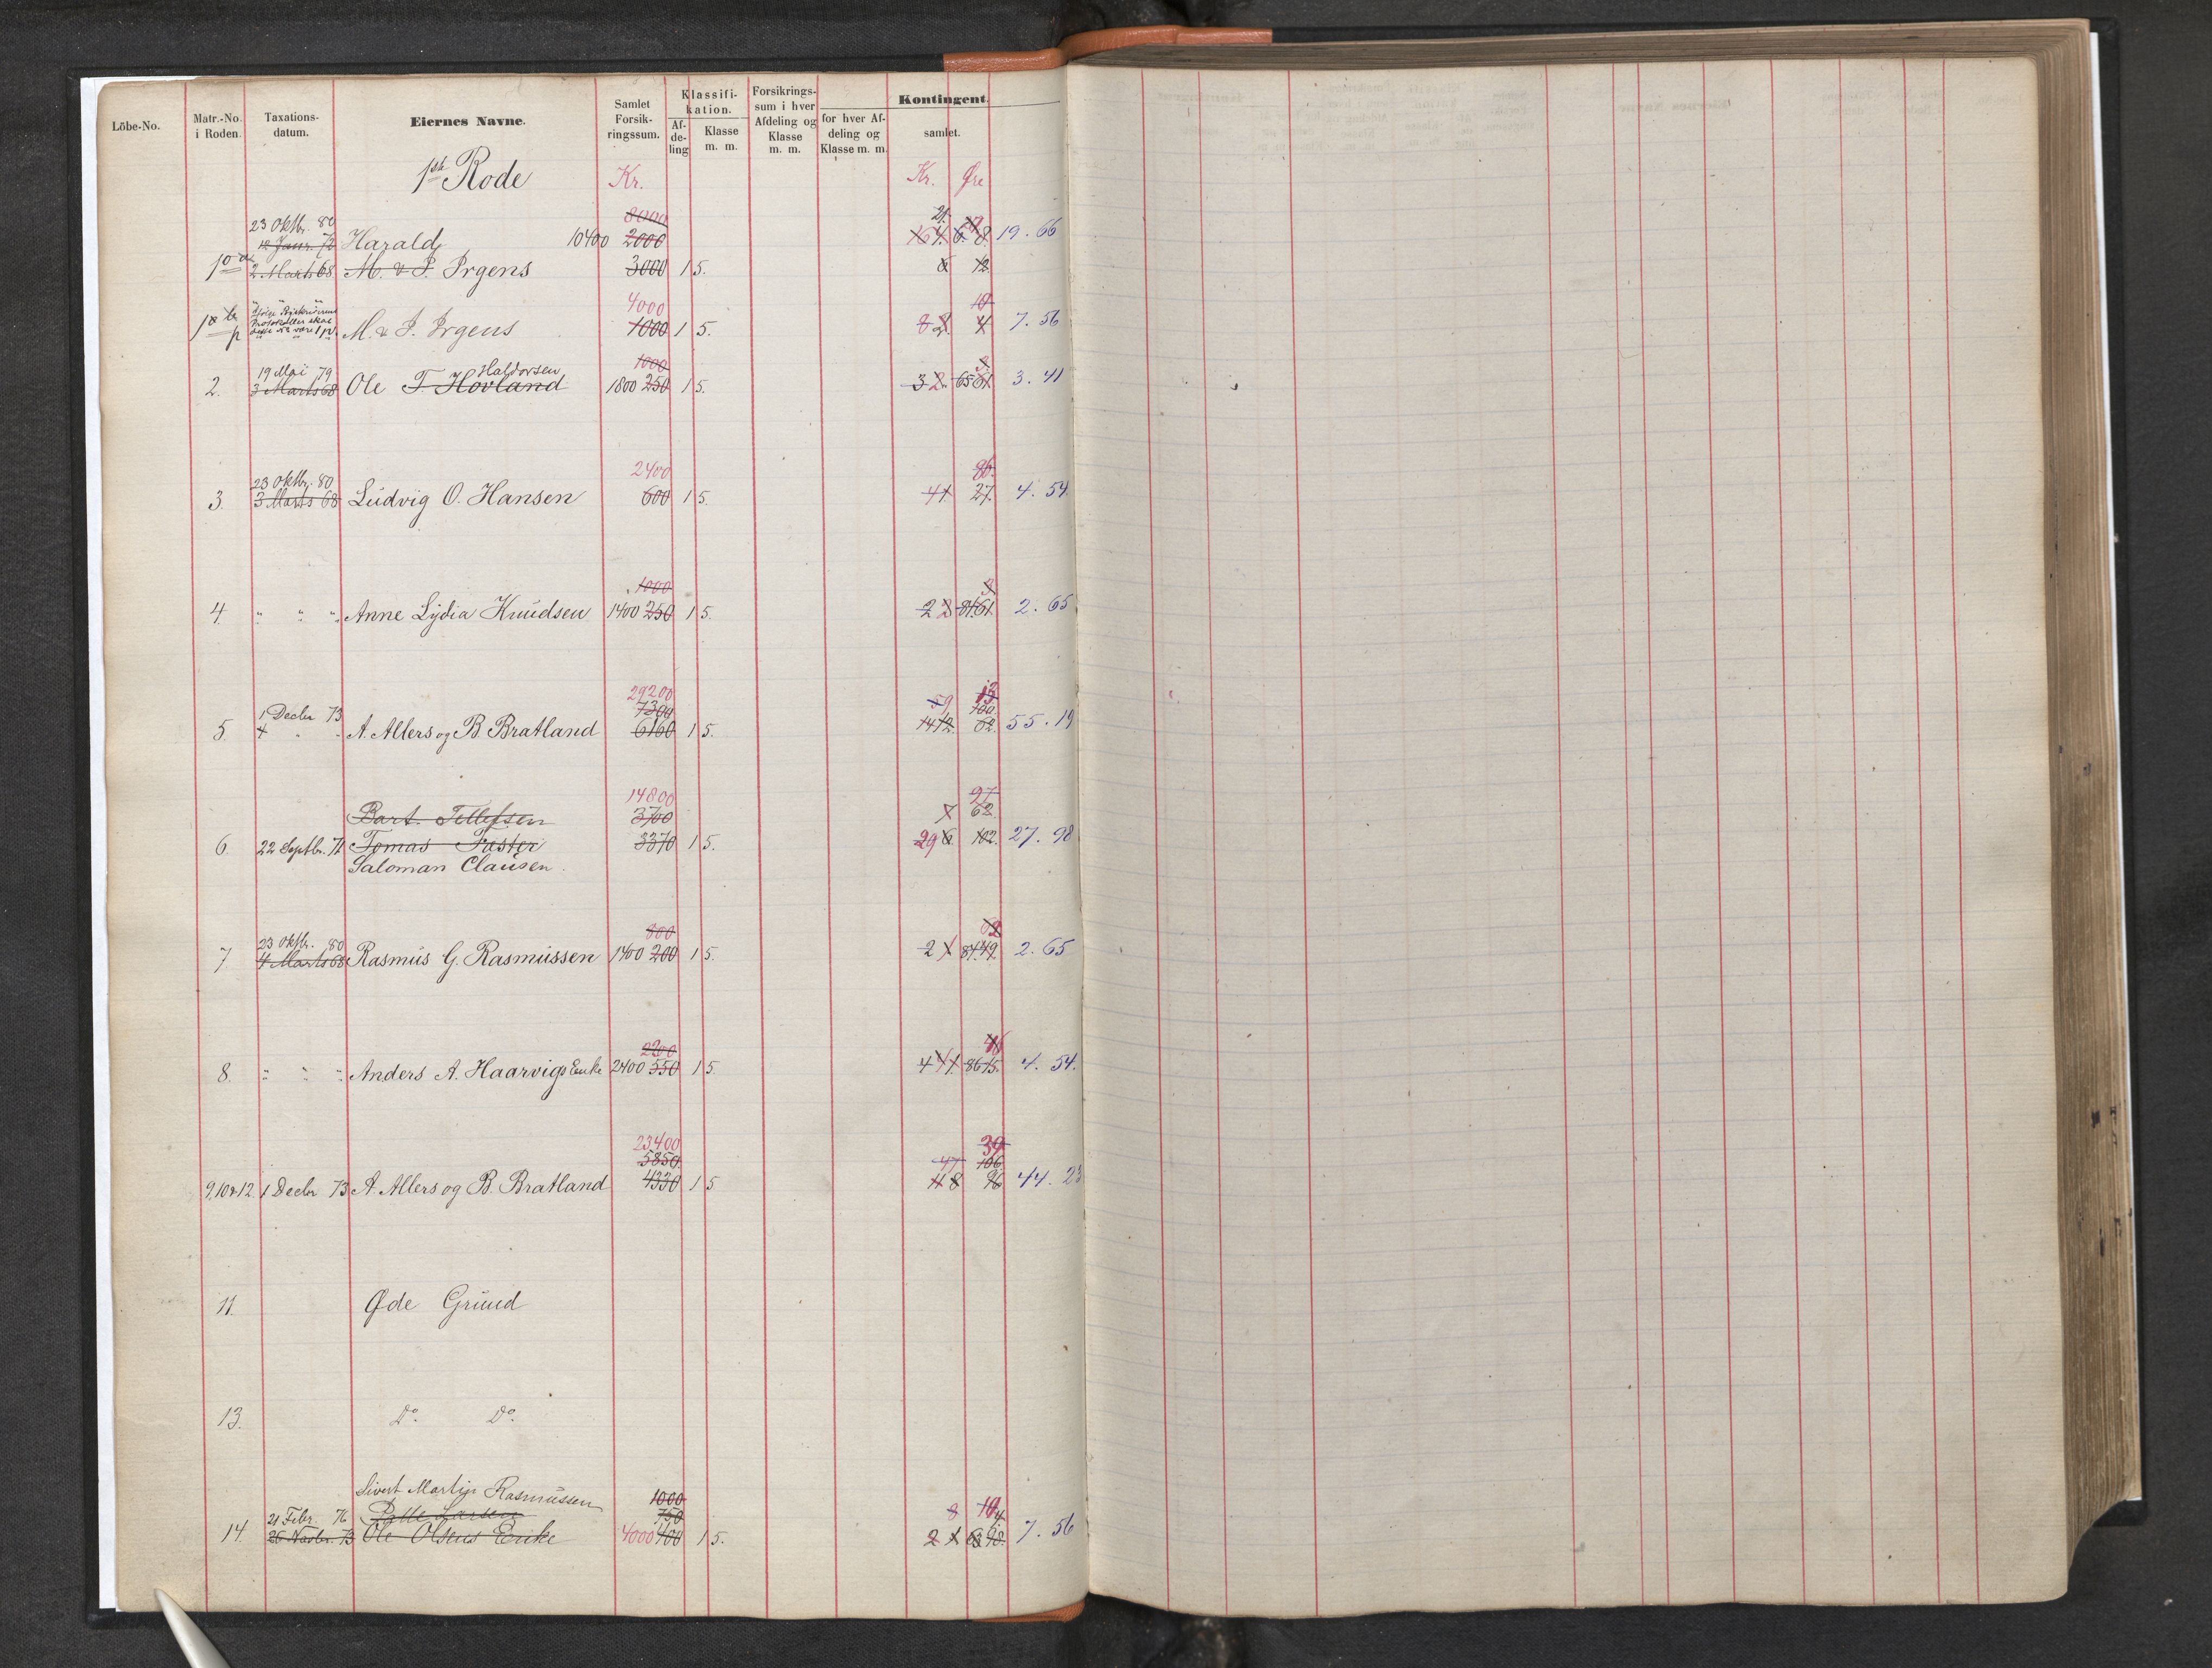 Löbe-No. Matr.-No. i Roden. Taxations-datum. Eiernes Navne. Samlet Forsik-ringssum. Klassifi-kation. Af-de-ling Klasse m. m. Forsikrings-sum i hver Afdeling og Klasse m. m. Kontingent. for hver Af-deling og Klasse m. m. samlet.
1ste Rode Kr. Kr. Øre
23 Oktbr. 80 8000 21.
Harald 10400 2000 19.66
1 a 2 Marts 68 M. & J. Irgens 3000 1 5. 12
4000 10
M. & J. Irgens 1000 1 5. 8 4 7.56
19 Mai 79 Haldorsen 1000 3
2. 3 Marts 68 Ole T. Hovland 1800 250 1 5. 3 2 65 61 3.41
23 Oktbr. 80 2400 86.
3. 3 Marts 68 Ludvig O. Hansen 600 1 5. 4 1 27. 4.54
1000 3
4. " " " Anne Lydia Knudsen 1400 250 1 5. 2 2 84 61. 2.65
29200 59 13
1 Decbr 73 7300 100
5. 4 " " A. Allers og B. Bratland 6160 1 5. 14 12 62. 55.19
14800 97
Bart. Tellefsen 3700 7 63.
6. 22 Septbr. 71 Tomas Fuster 3370 1 5. 29 6 102. 27.98
Saloman Clausen.
800 62
23 Oktbr. 80
7. 4 Marts 68 Rasmus G. Rasmussen 1400 200 1 5. 2 1 84 49. 2.65
2200 46
8. " " " Anders A. Haarvigs Enke 2400 550 1 5. 4 4 1 86 15. 4.54.
23400 39
5850 47 106
9, 10 & 12. 1 Decbr 73 A. Allers og B. Bratland 4330 1 5 11 8 96 44.23
11. Øde Grund
13. Do. Do.
Sivert Martin Rasmussen 1000
21 Febr. 76 Larsen 750 8 10
14. 26 Novbr. 73 Ole Olsens Enke 4000 400 1 5. 2 1 63 98. 7.56